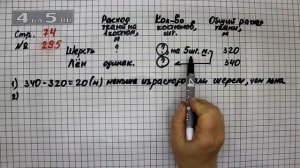 4 на 5 RU
Стр. 74
№ 295
Расход ткани на 1 костюм, м
Кол-во костюмов, шт.
Общий расход ткани, м
Шерсть ? ? на 5шт. м. 320
Лён одинак. ? 340
1) 340-320=20(м) меньше израсходовали шерсти, чем льна.
2)